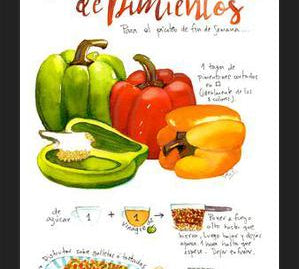 de Pimientos
Para el picoteo de fin de semana...
1 taza de
pimentones cortados
en □
(idealmente de los
3 colores).
de
azúcar
1
+
1
vinagre
Poner a fuego
alto hasta que
hierva, luego bajar y dejar
1 hora hasta que
espese. Dejar enfriar.
Disfrutar sobre galletas o tostadas